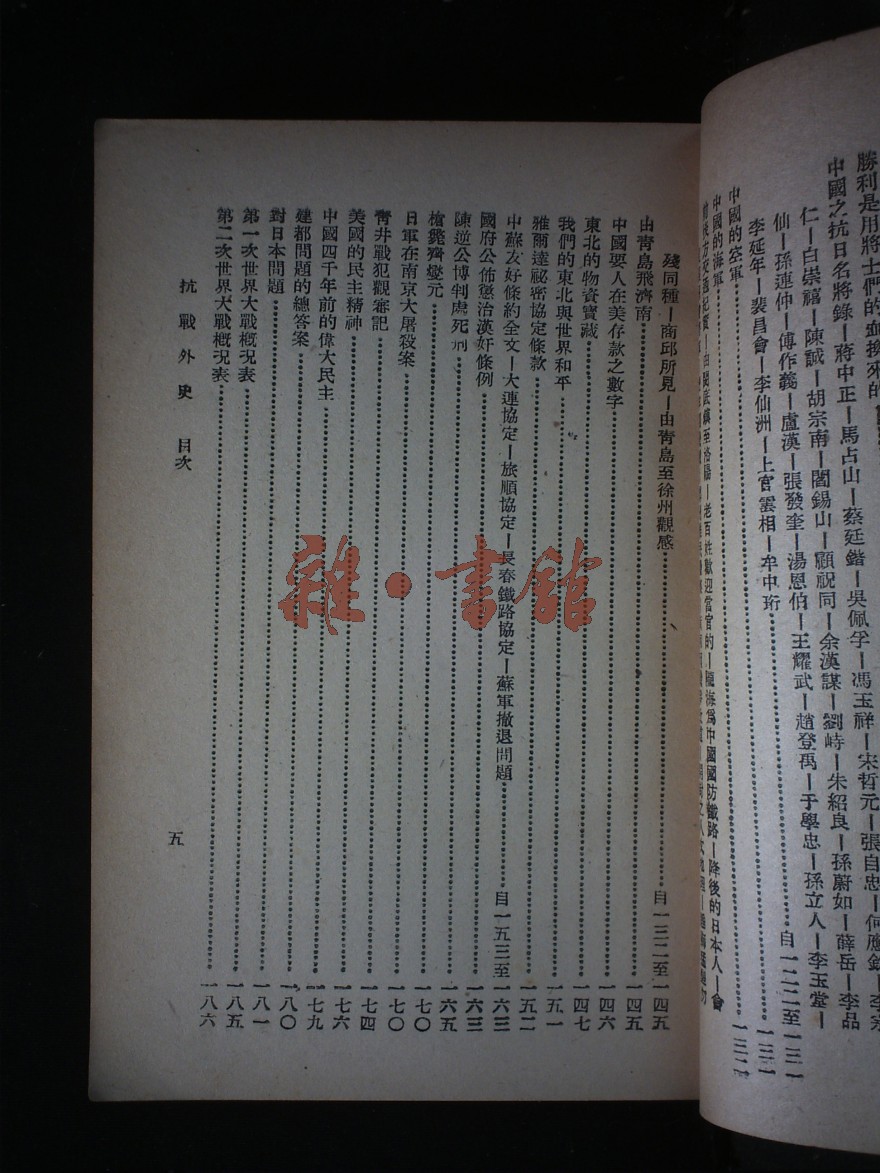 勝利是用將士們的血換來的
中國之抗日名將錄—蔣中正—馬占山—蔡廷鍇—吳佩孚—馮玉祥—宋哲元—張自忠—何應欽—李宗
仁—白崇禧—陳誠—胡宗南—閻錫山—顧祝同—余漢謀—劉峙—朱紹良—孫蔚如—薛岳—李品
仙—孫連仲—傅作義—盧漢—張發奎—湯恩伯—王耀武—趙登禹—于學忠—孫立人—李玉堂—
李延年—裴昌會—李仙洲—上官雲相—牟中珩……自一二二至一三一
中國的空軍……一三一
中國的海軍……一三二
老百姓歡迎當官的—隴海爲中國國防鐵路—降後的日本人—會
殘同種—商邱所見—由青島至徐州觀感……自一三二至一四五
由青島飛濟南……一四五
中國要人在美存款之數字……一四六
東北的物資寶藏……一四七
我們的東北與世界和平……一五一
雅爾達祕密協定條款……一五二
中蘇友好條約全文—大連協定—旅順協定—長春鐵路協定—蘇軍撤退問題……自一五三至一六三
國府公佈懲治漢奸條例……一六三
陳逆公博判處死刑……一六五
槍斃齊燮元……一七〇
日軍在南京大屠殺案……一七〇
青井戰犯觀審記……一七四
美國的民主精神……一七六
中國四千年前的偉大民主……一七九
建都問題的總答案……一八〇
對日本問題……一八一
第一次世界大戰概況表……一八五
第二次世界大戰概況表……一八六
抗戰外史 目次
五
雜·書館